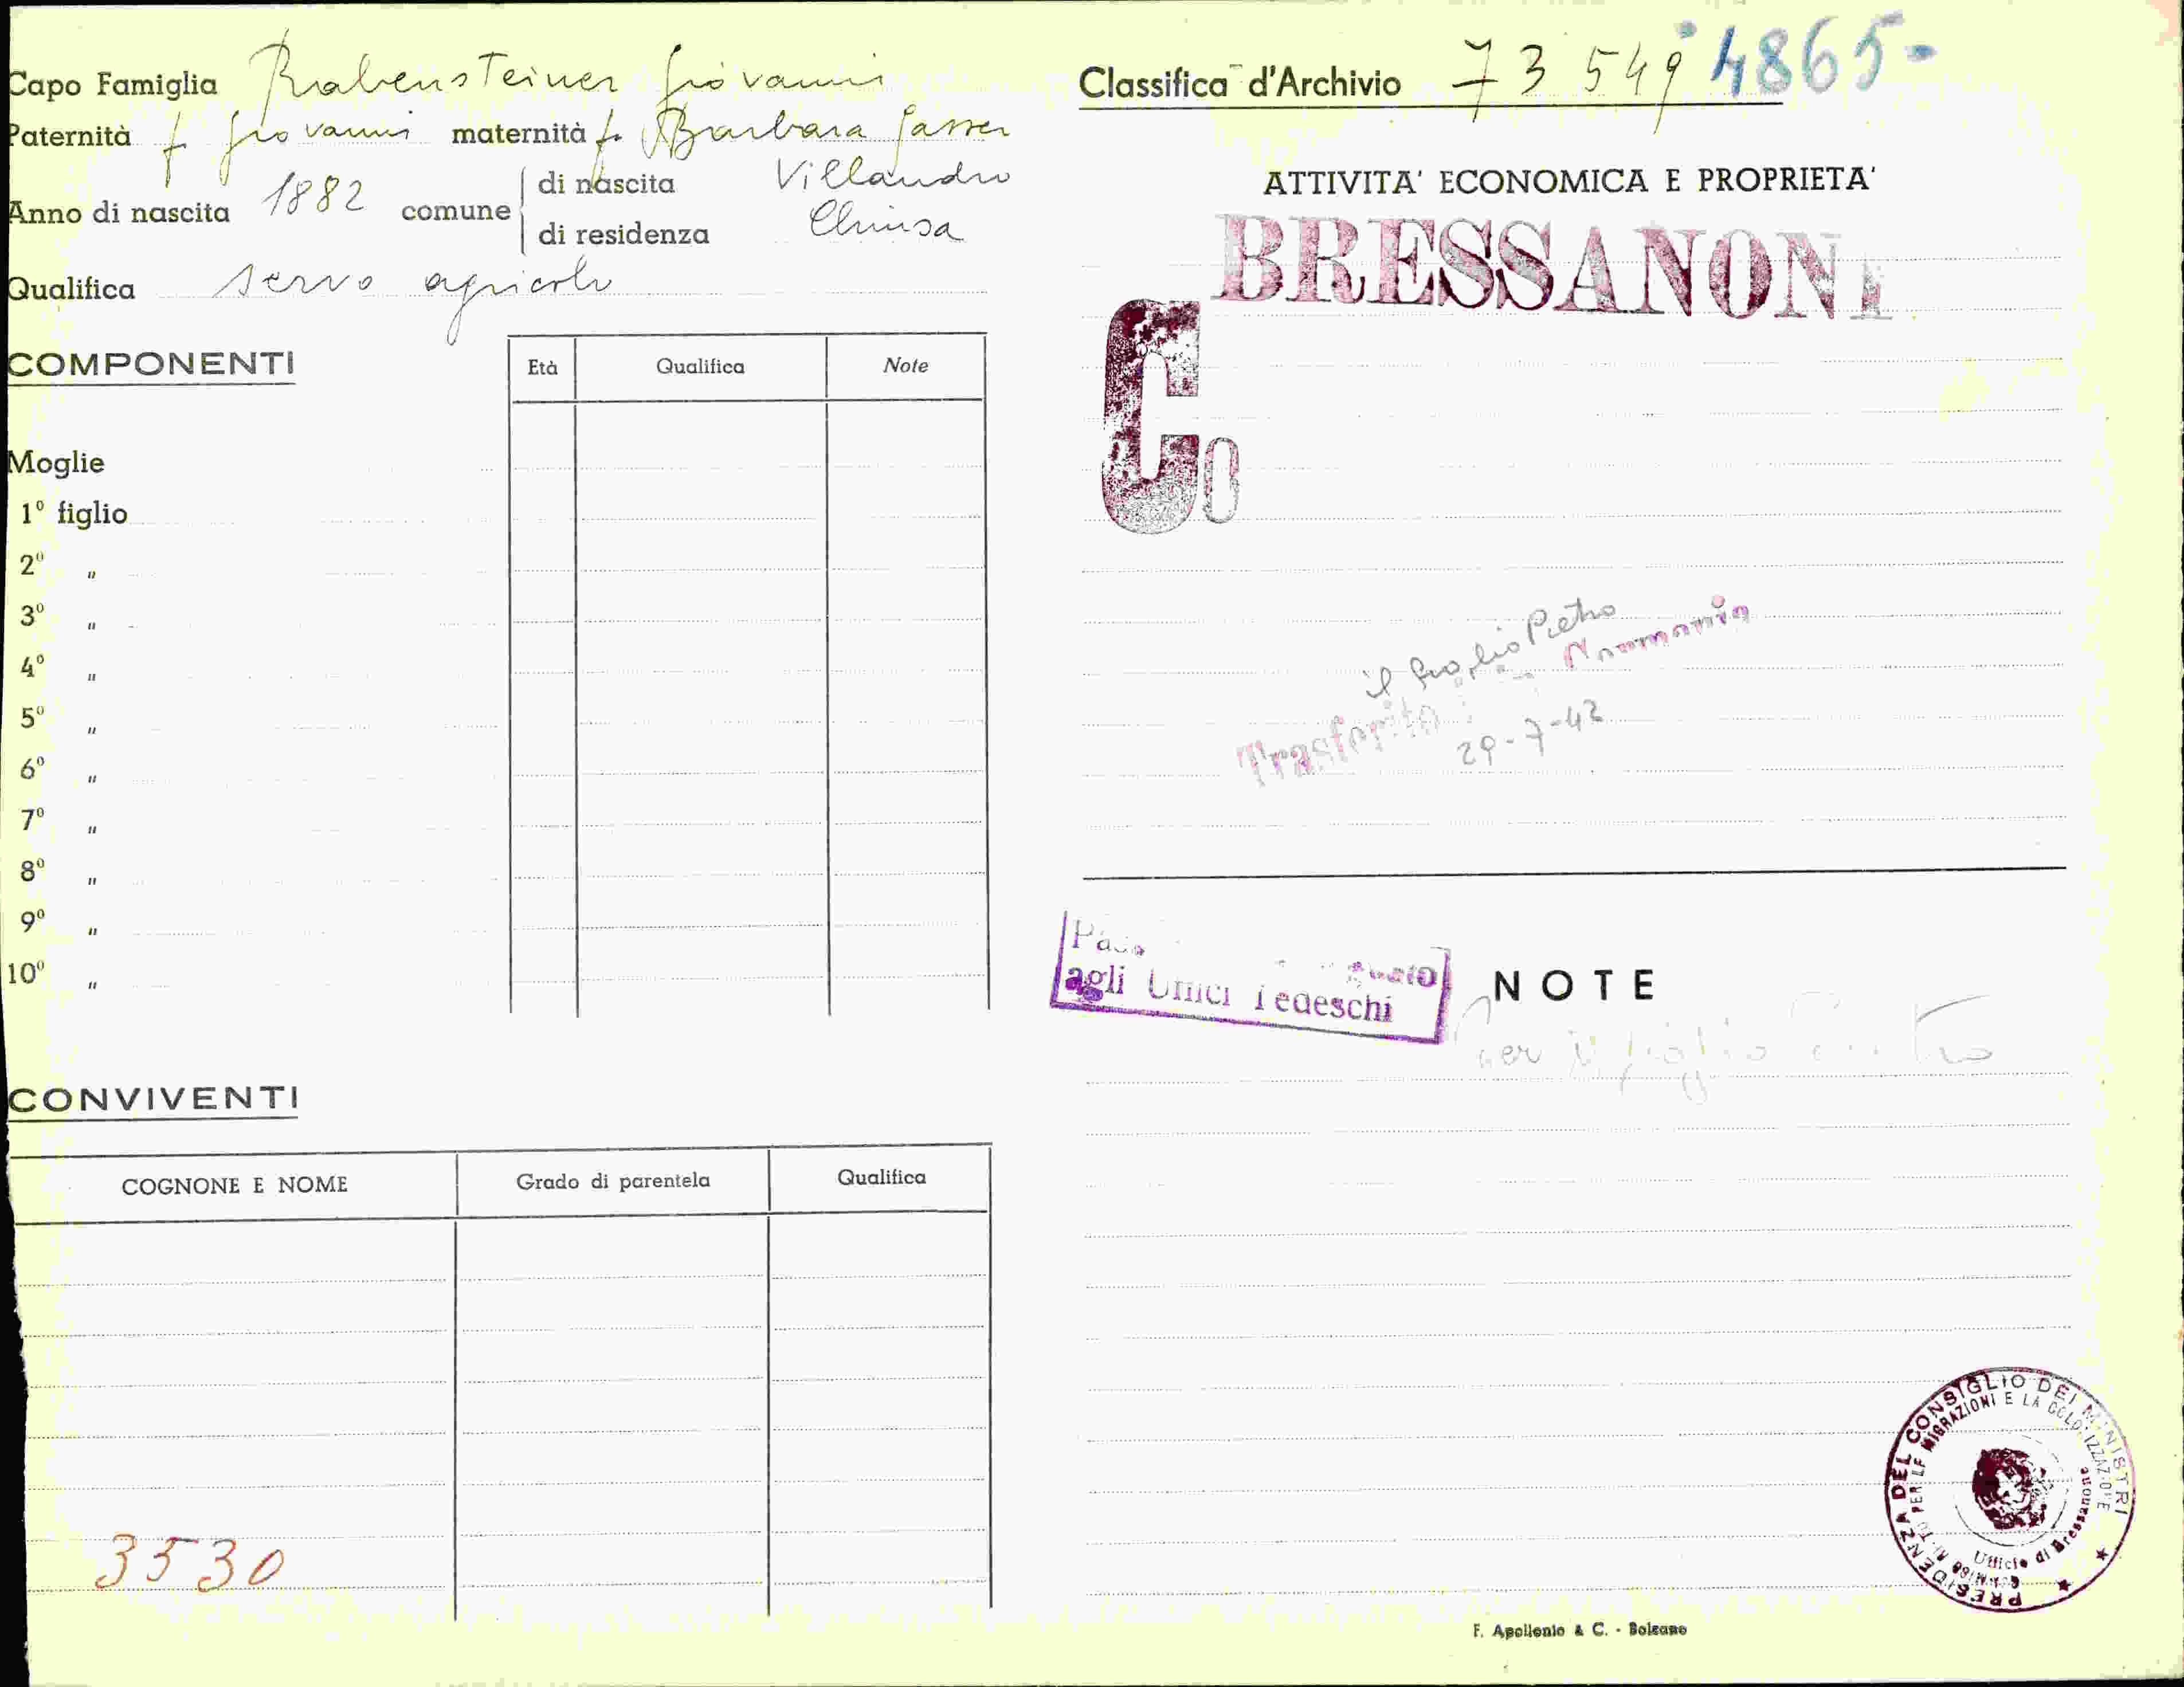 Capo Famiglia Rabensteiner Giovanni
Paternità f Giovanni maternità f. Barbara Gasser
Anno di nascita 1882 comune di nascita Villandro
di residenza Chiusa
Qualifica servo agricolo
COMPONENTI
Età Qualifica Note
Moglie
1º figlio
2º "
3º "
4º "
5º "
6º "
7º "
8º "
9º "
10º "
CONVIVENTI
COGNONE E NOME Grado di parentela Qualifica
3530
Classifica d'Archivio 73549 4865-
ATTIVITA' ECONOMICA E PROPRIETA'
BRESSANONE
Co
il figlio Pietro
Trasferito
29-7-42
agli Uffici Tedeschi
NOTE
per il figlio
PRESIDENZA DEL CONSIGLIO DEI MINISTRI
MIGRAZIONI E LA COLONIZZAZIONE
Ufficio di Bressanone
F. Apollonio & C. - Bolzano